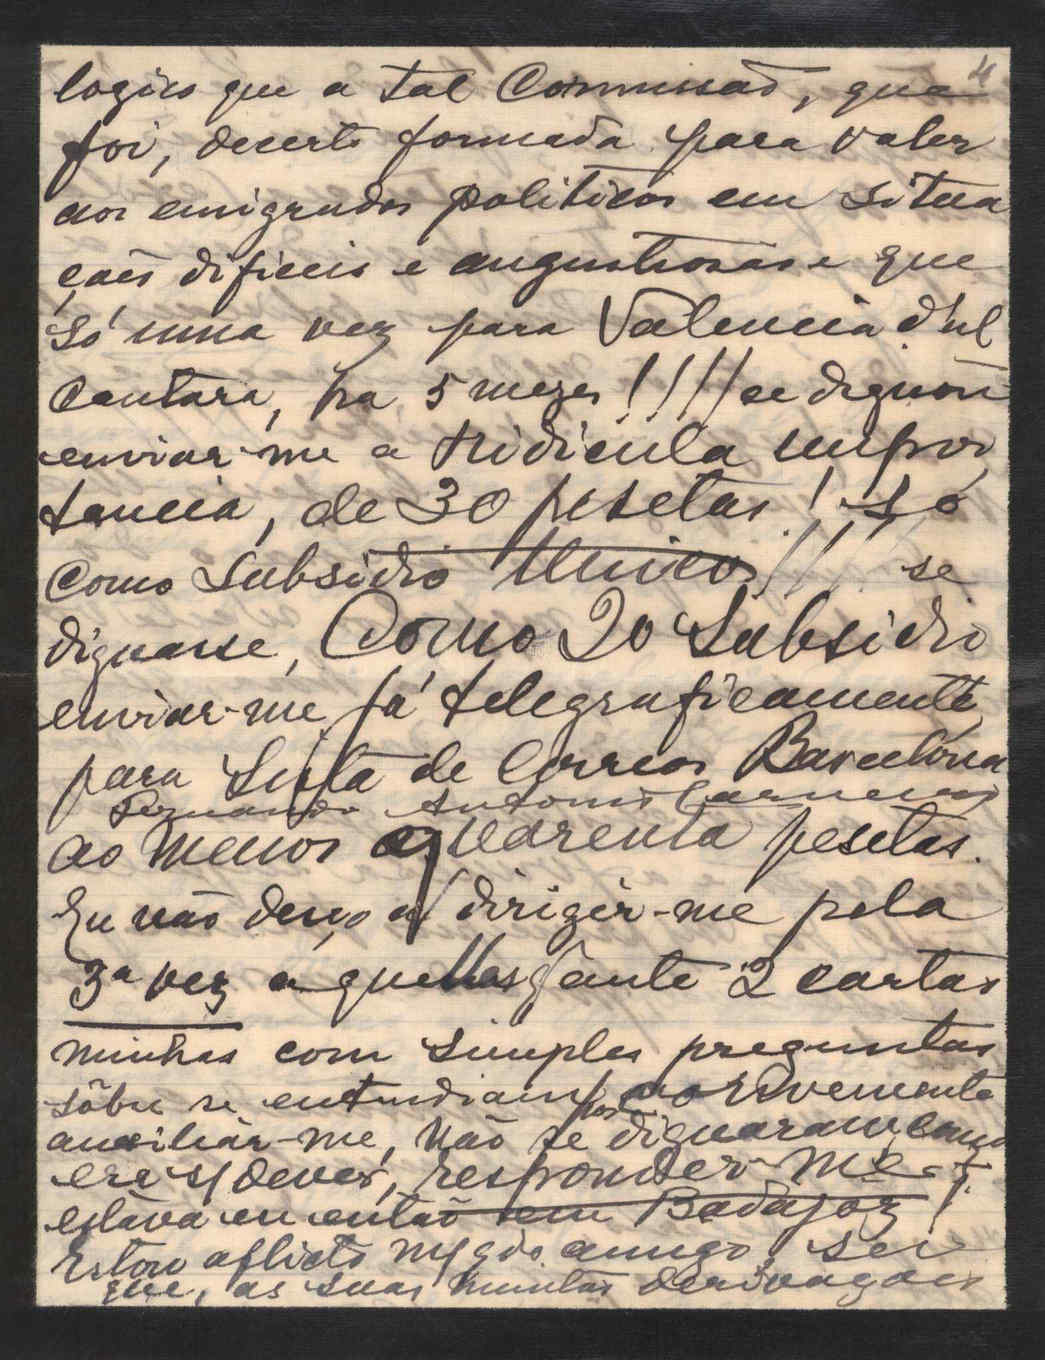 4
logico que a tal Commissão, que
foi, decerto formada para valer
aos emigrados politicos em situa
ções dificeis e angustiosas e que
só uma vez para Valencia d'Al
cantara, ha 5 mezes!!!! se dignou
enviar-me a ridicula impor
tancia, de 30 pesetas! só
como subsidio unico!!! se
dignasse, Como 2o Subsidio
enviar-me já telegraficamente,
para Lista de Correos Barcelona
Fernando Antonio Carneiro
ao menos quarenta pesetas.
Eu não devo dirigir-me pela
3ª vez a quem ante 2 cartas
minhas com simples preguntas
sôbre se entendiam ou
auxiliar-me, não se dignaram, como
era s/ dever, responder-me!
estava eu então em Badajoz!
Estou aflicto meu amigo, sei
que, as suas muitas